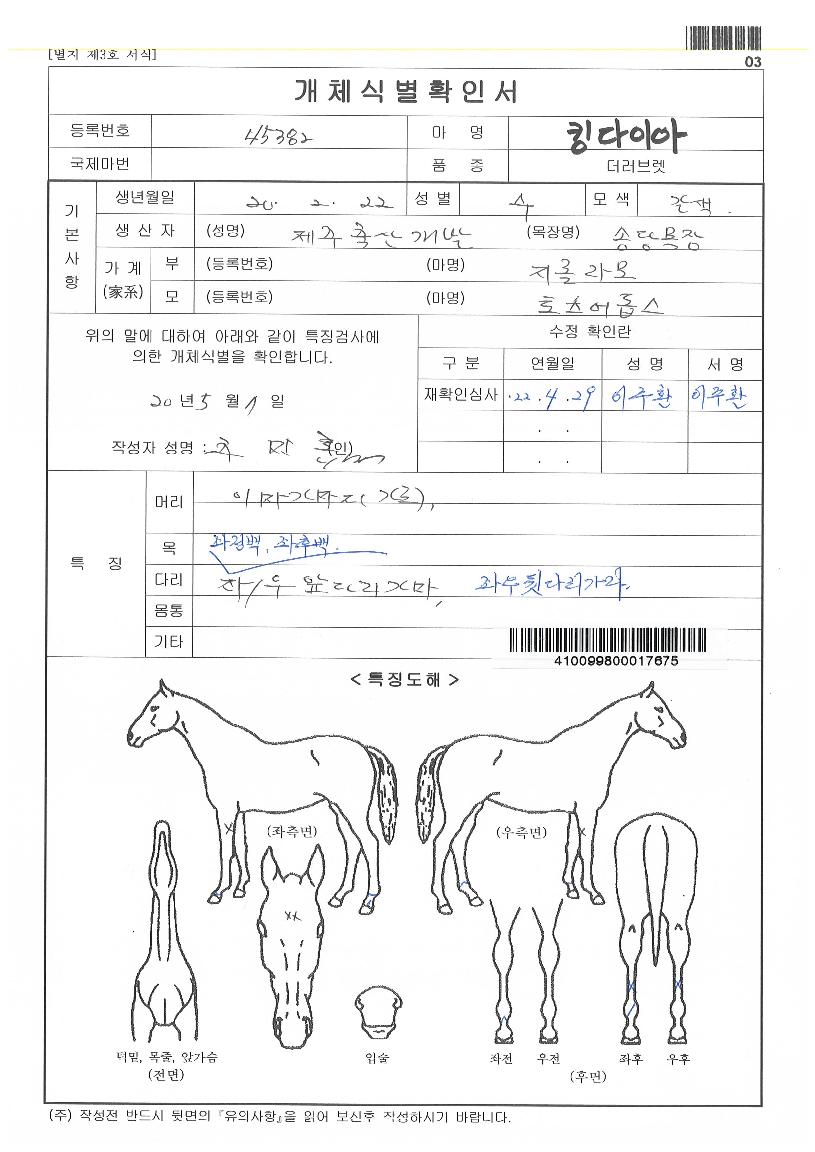 [별지 제3호 서식]
03
개체식별확인서
등록번호 45382 마 명 킹다이아
국제마번 품 종 더러브렛
기본사항
생년월일 20. 2. 22 성별 수 모색 갈색.
생산자 (성명) 제주축산개발 (목장명) 송당목장
가계(家系) 부 (등록번호) (마명) 지롤라모
모 (등록번호) (마명)
위의 말에 대하여 아래와 같이 특징검사에
의한 개체식별을 확인합니다.
20년 5월 1일
작성자 성명 : (인)
수정 확인란
구분 연월일 성명 서명
재확인심사 .22.4.29 이주환 이주환
. .
. .
특 징
머리 이마가마2(가로),
목
좌전백, 좌후백.
다리 좌/우 앞다리가마, 좌우뒷다리가마.
몸통
기타
410099800017675
< 특징도해 >
(좌측면) (우측면)
턱밑, 목줄, 앞가슴
(전면)
입술
좌전 우전 좌후 우후
(후면)
(주) 작성전 반드시 뒷면의 『유의사항』을 읽어 보신후 작성하시기 바랍니다.